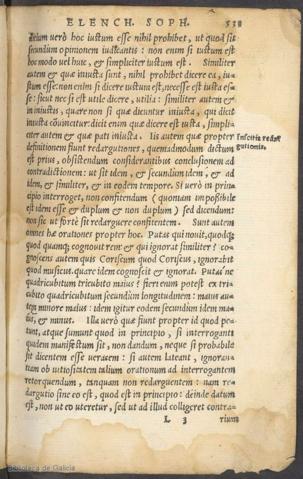 ELENCH. SOPH. 538
verò hoc iustum esse nihil prohibet, ut quod sit
secundum opinionem iudicantis : non enim si iustum est
hoc modo uel huic, & simpliciter iustum est. Similiter
autem & quæ iniusta sunt, nihil prohibet dicere ea, iu-
stum esse: non enim si dicere iustum est, necesse est iusta es-
se : sicut nec si est utile dicere, utilia : similiter autem &
in iustis, quare non si quæ dicuntur iniusta, qui dicit
iniusta cõuincetur: dicit enim quæ dicere est iusta, simplici-
citer autem & quæ pati iniusta. Iis autem quæ propter
definitionem fiunt redargutiones, quemadmodum dictum
est prius, obsistendum considerantibus conclusionem ad
contradictionem : ut sit idem, & secundum idem, & ad
idem, & similiter, & in eodem tempore. Si uerò in prin-
cipio interroget, non confitendum ( quoniam impoßibile
est idem esse & duplum & non duplum ) sed dicendum:
non sic ut fortè sit redarguere confitentem. Sunt autem
omnes hæ orationes propter hoc. Putas qui nouit,
quod quamq; cognouit rem & qui ignorat similiter? co-
gnoscens autem quis Coriscum quod Coriscus, ignorabit
quod musicus. quare idem cognoscit & ignorat. Putas ne
quadricubitum tricubito maius? fieri enim potest ex tri-
cubito quadricubitum secundum longitudinem : maius au-
tem minore maius : idem igitur eodem secundum idem ma-
ius, & minus. Illa uerò quæ fiunt propter id quod pe-
tunt, atque sumunt quod in principio, si interroganti
quidem manifestum sit, non dandum, neque si probabile
sit dicentem esse ueracem : si autem lateant, ignoran-
tiam ob uitiositatem talium orationum ad interrogantem
retorquendum, tanquam non redarguentem : nam re-
dargutio sine eo est, quod est in principio : deinde datum
est, non ut eo uteretur, sed ut ad illud colligeret contra-
L 3 rium
Inscitia redar
gutionis.
Biblioteca de Galicia